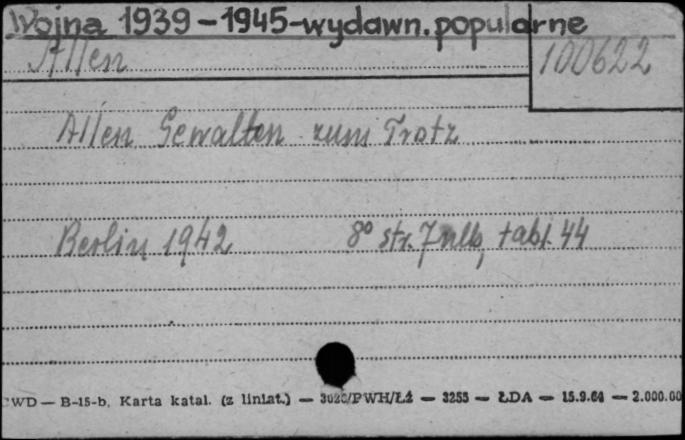 Wojna 1939-1945-wydawn. popularne
Allen
100622
Allen Gewalten zum Trotz
Berlin 1942 8° str. 7 nlb, tabl. 44
CWD — B-15-b. Karta katal. (z liniat.) — PWH/Łź — 3255 — ŁDA — 15.9.64 — 2.000.00